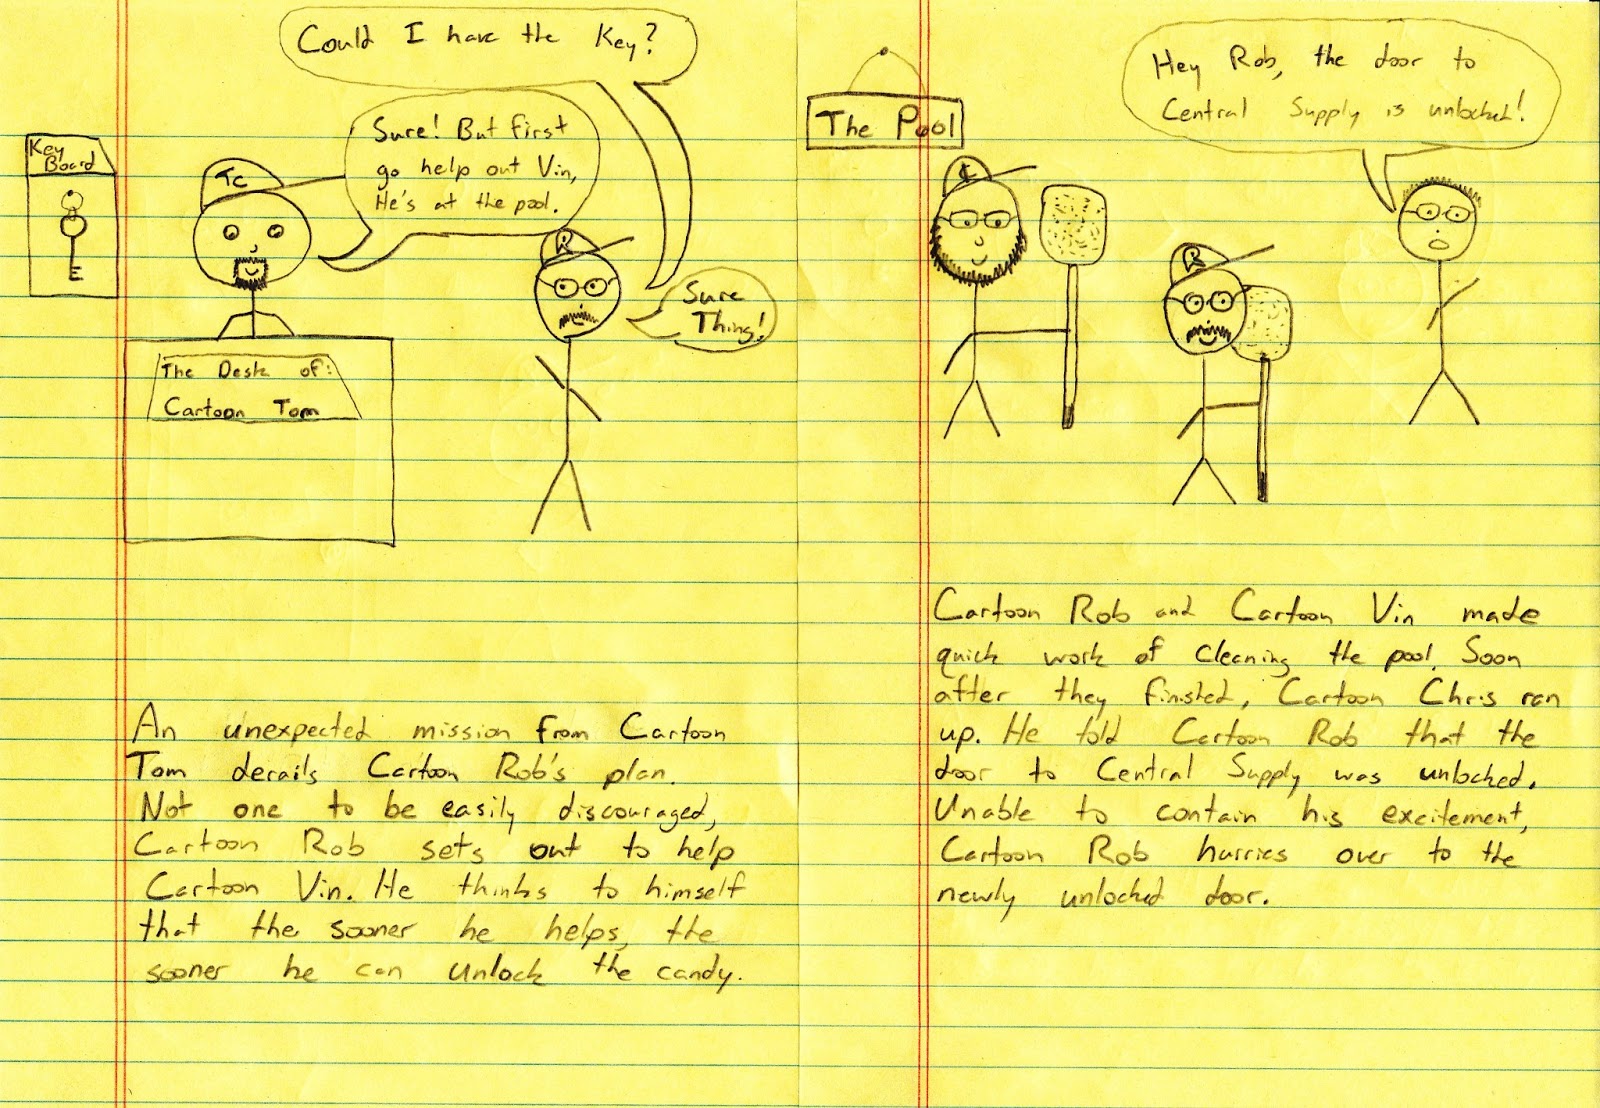 Could I have the Key?
Sure! But first
go help out Vin,
He's at the pool.
Key
Board
TC
R
Sure
Thing!
The Desk of:
Cartoon Tom
An unexpected mission from Cartoon
Tom derails Cartoon Rob's plan.
Not one to be easily discouraged,
Cartoon Rob sets out to help
Cartoon Vin. He thinks to himself
that the sooner he helps, the
sooner he can unlock the candy.
The Pool
Hey Rob, the door to
Central Supply is unlocked!
R
Cartoon Rob and Cartoon Vin made
quick work of cleaning the pool. Soon
after they finished, Cartoon Chris ran
up. He told Cartoon Rob that the
door to Central Supply was unlocked.
Unable to contain his excitement,
Cartoon Rob hurries over to the
newly unlocked door.